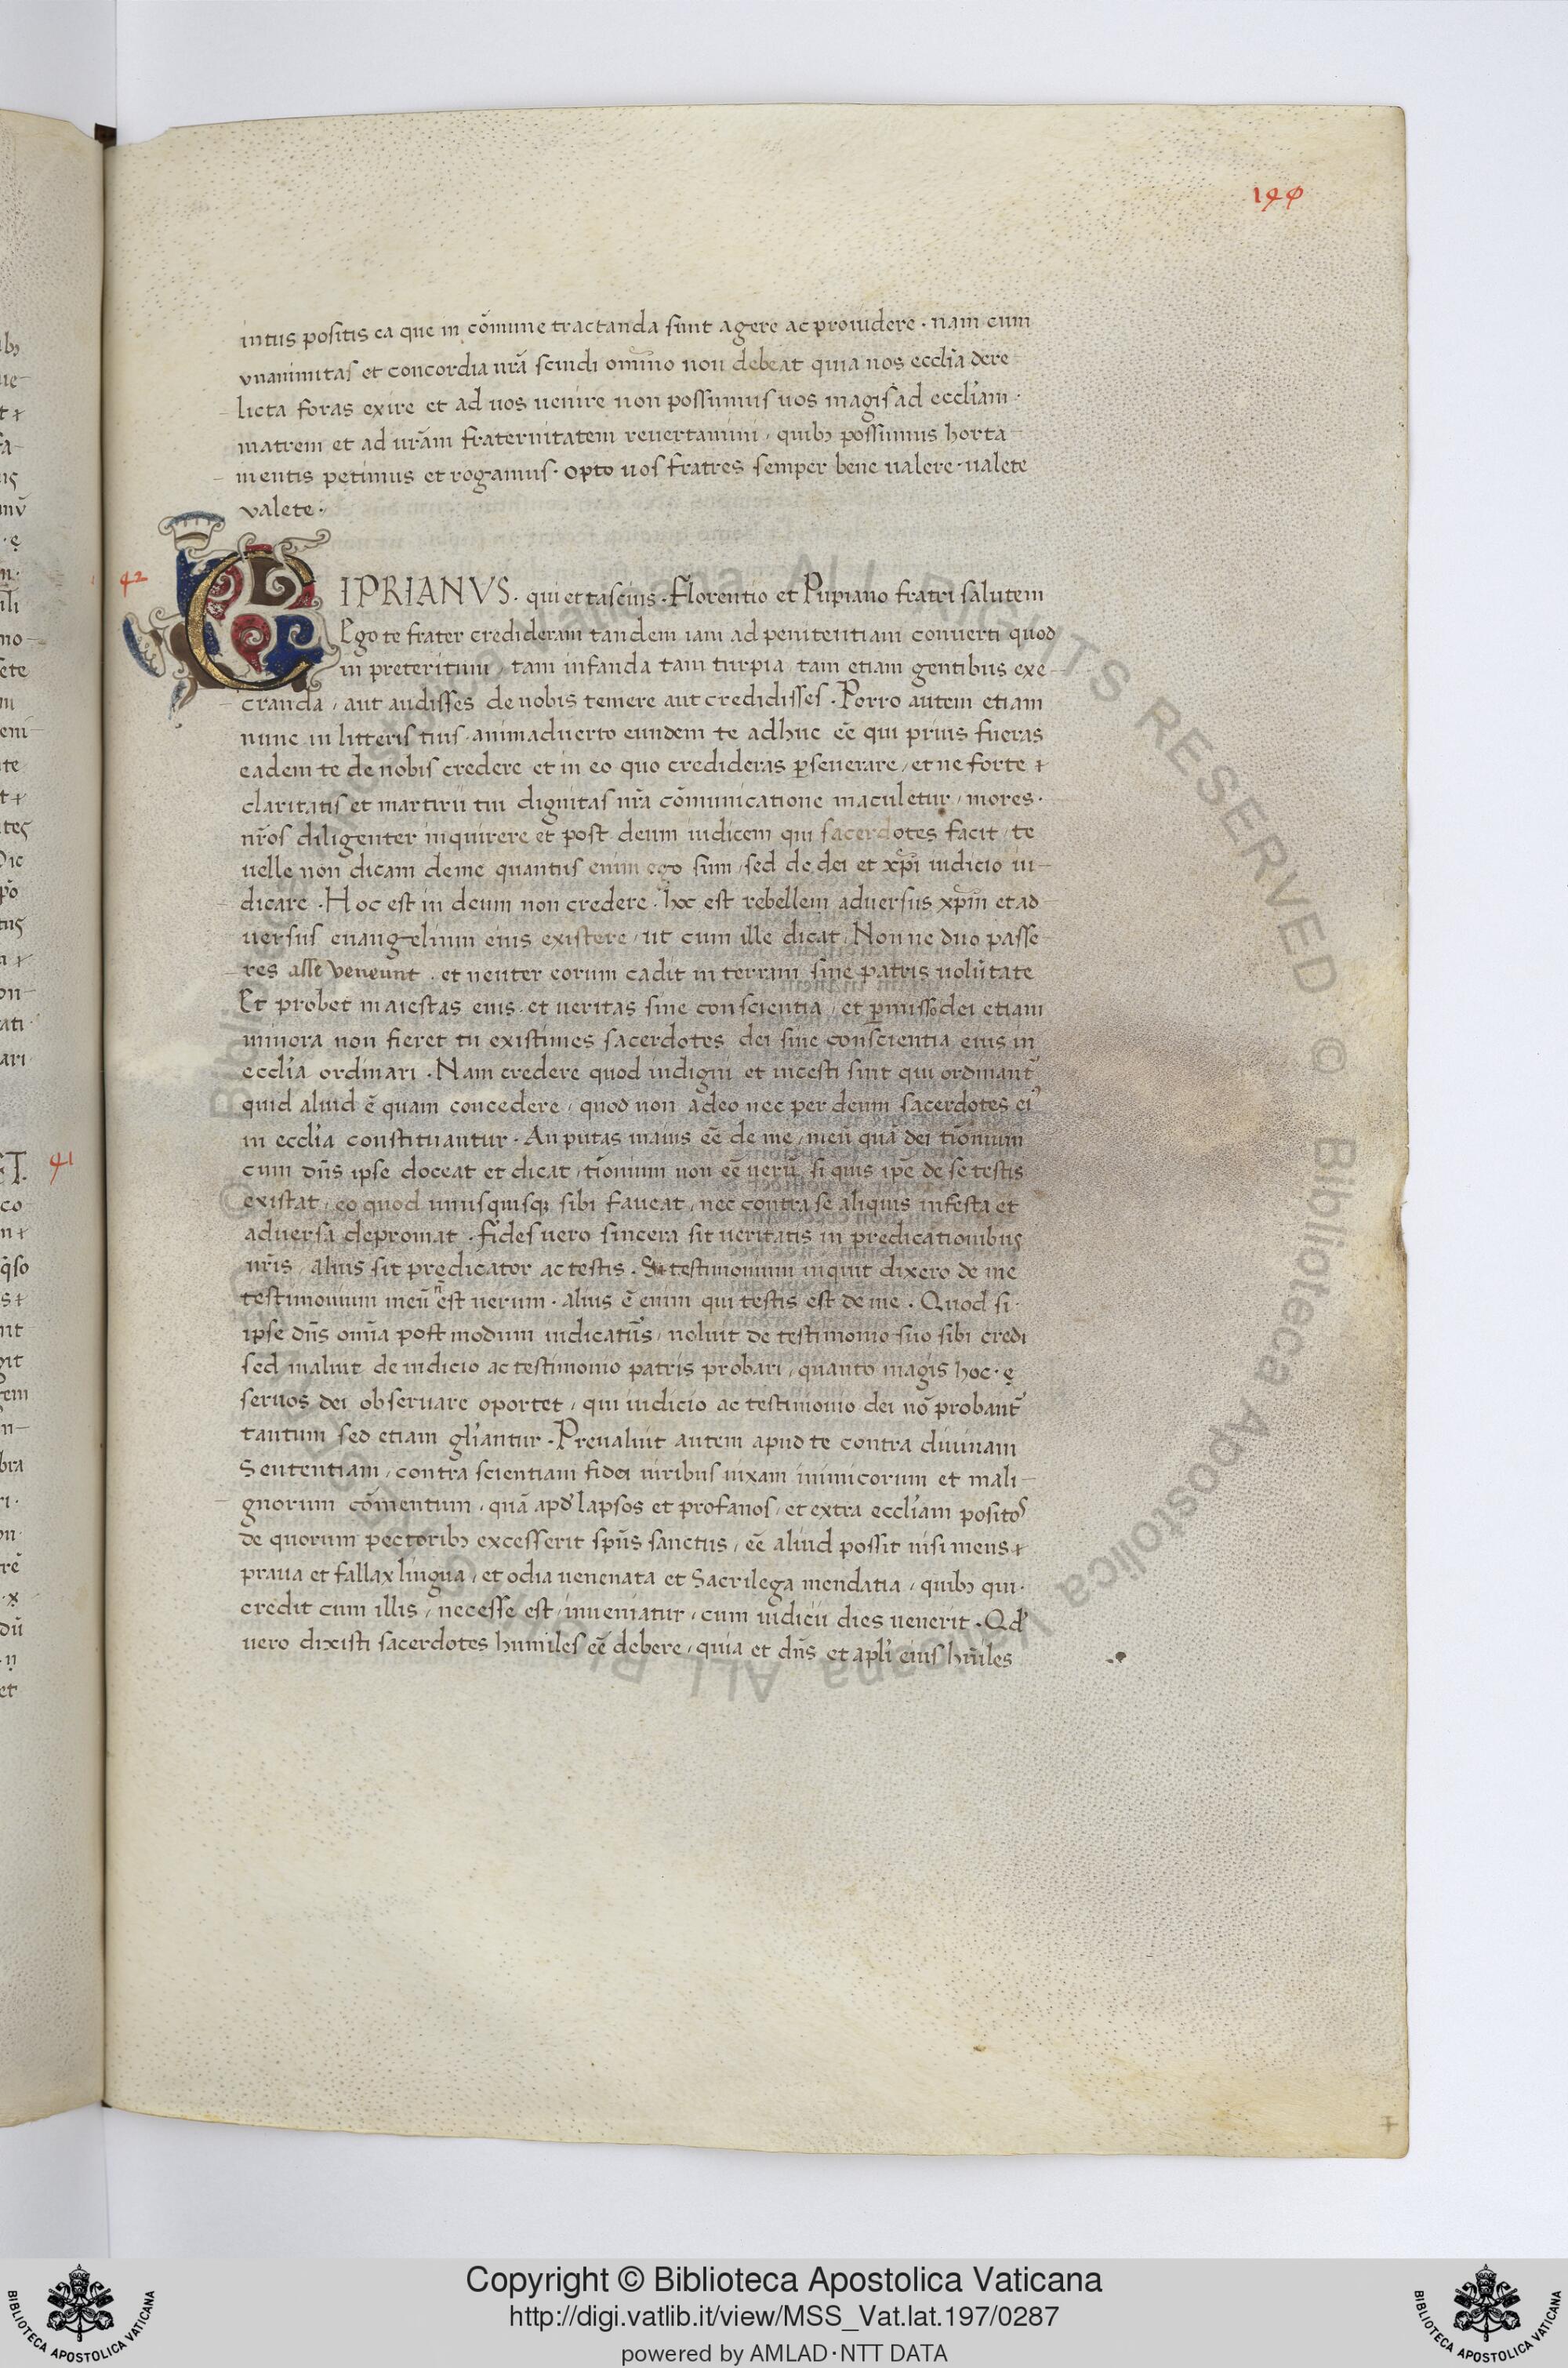 140
intus positis ea que in cōmune tractanda sunt agere ac prouidere · nam cum
vnanimitas et concordia nrā scindi omīno non debeat quia nos ecclia dere
licta foras exire et ad uos uenire non possumus uos magis ad eccliam ·
matrem et ad urām fraternitatem reuertamini, quibꝫ possumus horta
mentis petimus et rogamus · opto uos fratres semper bene ualere · ualete
valete ·
42
CIPRIANVS · qui et tascius · Florentio et Pupiano fratri salutem
Ego te frater credideram tandem iam ad penitentiam conuerti quod
in preteritum, tam infanda tam turpia tam etiam gentibus exe-
cranda, aut audisses de nobis temere aut credidisses · Porro autem etiam
nunc in litteris tuis animaduerto eundem te adhuc eē qui prius fueras
eadem te de nobis credere et in eo quo credideras ꝑseuerare, et ne forte
claritatis et martirii tui dignitas nrā cōmunicatione maculetur, mores ·
nr̄os diligenter inquirere et post deum iudicem qui sacerdotes facit, te
uelle non dicam de me quantus enim ego sum, sed de dei et xp̄i iudicio iu-
dicare · Hoc est in deum non credere · hoc est rebellem aduersus xp̄m et ad
uersus euangelium eius existere, ut cum ille dicat, Nonne duo passe
res asse veneunt · et neuter eorum cadit in terram sine patris volūtate
Et probet maiestas eius · et ueritas sine conscientia, et ꝑmisso dei etiam
minora non fieret tu existimes sacerdotes dei sine conscientia eius in
ecclia ordinari · Nam credere quod indigni et incesti sint qui ordinant̄
quid aliud ē quam concedere, quod non a deo nec per deum sacerdotes ei᾽
in ecclia constituantur · An putas maius eē de me, meū quā dei tīonium
cum dn̄s ipse doceat et dicat, tīonium non eē uerū, si quis ip̄e de se testis
existat, eo quod unusquisqꝫ sibi faueat, nec contra se aliquis infesta et
aduersa depromat · fides uero sincera sit ueritatis in predicationibus
ur̄is, alius sit predicator ac testis · Si testimonium inquit dixero de me
testimonium meū n̄ est uerum · alius ē enim qui testis est de me · Quod si ·
ipse dn̄s omīa postmodum iudicatur̄s, noluit de testimonio suo sibi credi
sed maluit de iudicio ac testimonio patris probari, quanto magis hoc · ę
seruos dei obseruare oportet, qui iudicio ac testimonio dei nō probant̄
tantum sed etiam gliantur · Preualuit autem apud te contra diuinam
Sententiam, contra scientiam fidei uiribus nixam inimicorum et mali-
gnorum cōmentum, quā apd᾽ lapsos et profanos, et extra eccliam posito᾽
de quorum pectoribꝫ excesserit spn̄s sanctus, eē aliud possit nisi mens
praua et fallax lingua, et odia uenenata et Sacrilega mendatia, quibꝫ qui ·
credit cum illis, necesse est, inueniatur, cum iudicii dies uenerit · Qd᾽
uero dixisti sacerdotes humiles eē debere, quia et dn̄s et apli eius hūiles
41
Copyright © Biblioteca Apostolica Vaticana
http://digi.vatlib.it/view/MSS_Vat.lat.197/0287
powered by AMLAD·NTT DATA
BIBLIOTECA APOSTOLICA VATICANA
BIBLIOTECA APOSTOLICA VATICANA